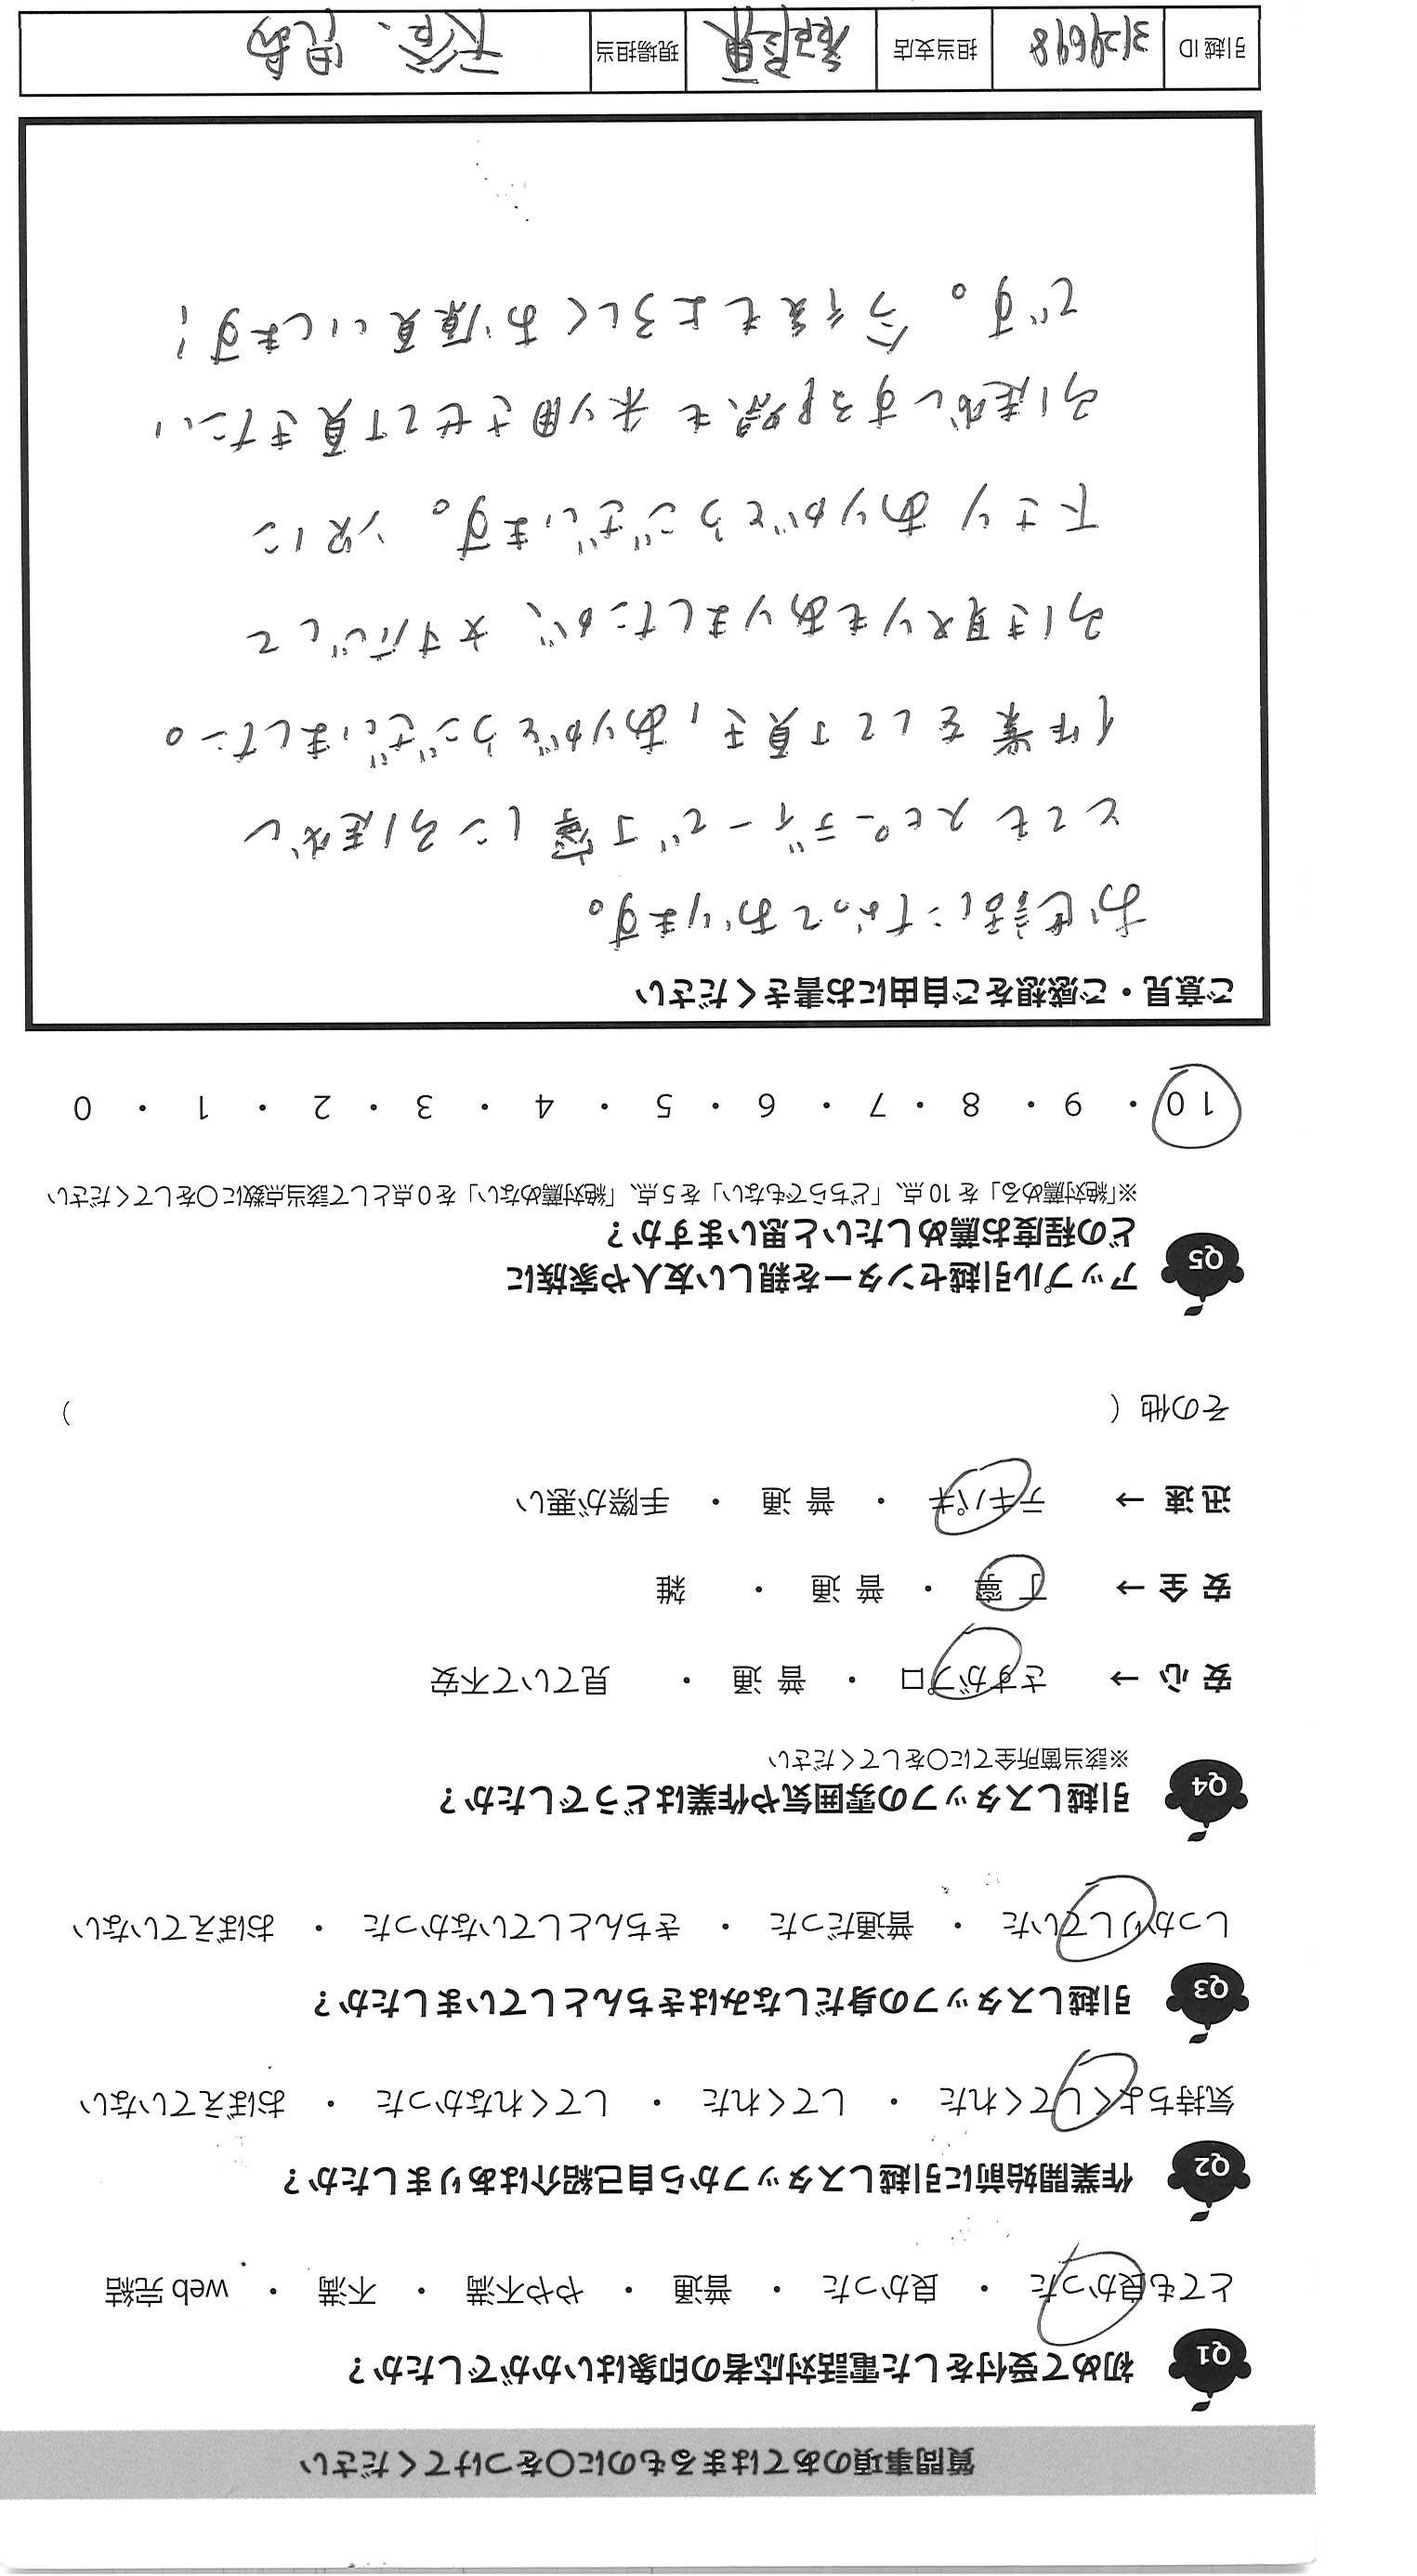 質問事項のあてはまるものに○をつけてください
Q1 初めて受付をした電話対応者の印象はいかがでしたか？
とても良かった ・ 良かった ・ 普通 ・ やや不満 ・ 不満 ・ web 完結
Q2 作業開始前に引越しスタッフから自己紹介はありましたか？
気持ちよくしてくれた ・ してくれた ・ してくれなかった ・ おぼえていない
Q3 引越しスタッフの身だしなみはきちんとしていましたか？
しっかりしていた ・ 普通だった ・ きちんとしていなかった ・ おぼえていない
Q4 引越しスタッフの雰囲気や作業はどうでしたか？
※該当箇所全てに○をしてください
安 心 → さすがプロ ・ 普 通 ・ 見ていて不安
安 全 → 丁 寧 ・ 普 通 ・ 雑
迅 速 → テキパキ ・ 普 通 ・ 手際が悪い
その他（ ）
Q5 アップル引越センターを親しい友人や家族に
どの程度お薦めしたいと思いますか？
※「絶対薦める」を 10 点、「どちらでもない」を 5 点、「絶対薦めない」を 0 点として該当点数に○をしてください
10 ・ 9 ・ 8 ・ 7 ・ 6 ・ 5 ・ 4 ・ 3 ・ 2 ・ 1 ・ 0
ご意見・ご感想をご自由にお書きください
お世話になっております。
とてもスピーディーで丁寧に引越し
作業をして頂き、ありがとうございました。
引き見積りもありましたが、対応して
下さりありがとうございます。次に
引越しする際も利用させて頂きたい
です。今後もよろしくお願いします！
引越 ID 3129698 担当支店 現場担当